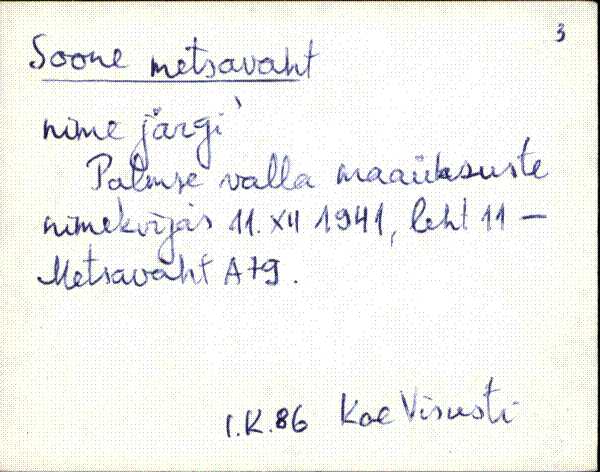 3
Soone metsavaht
nime järgi
Palmse valla maaüksuste
nimekirjas 11. XII 1941, leht 11 –
Metsavaht A79.
I.K.86 Koe Visusti